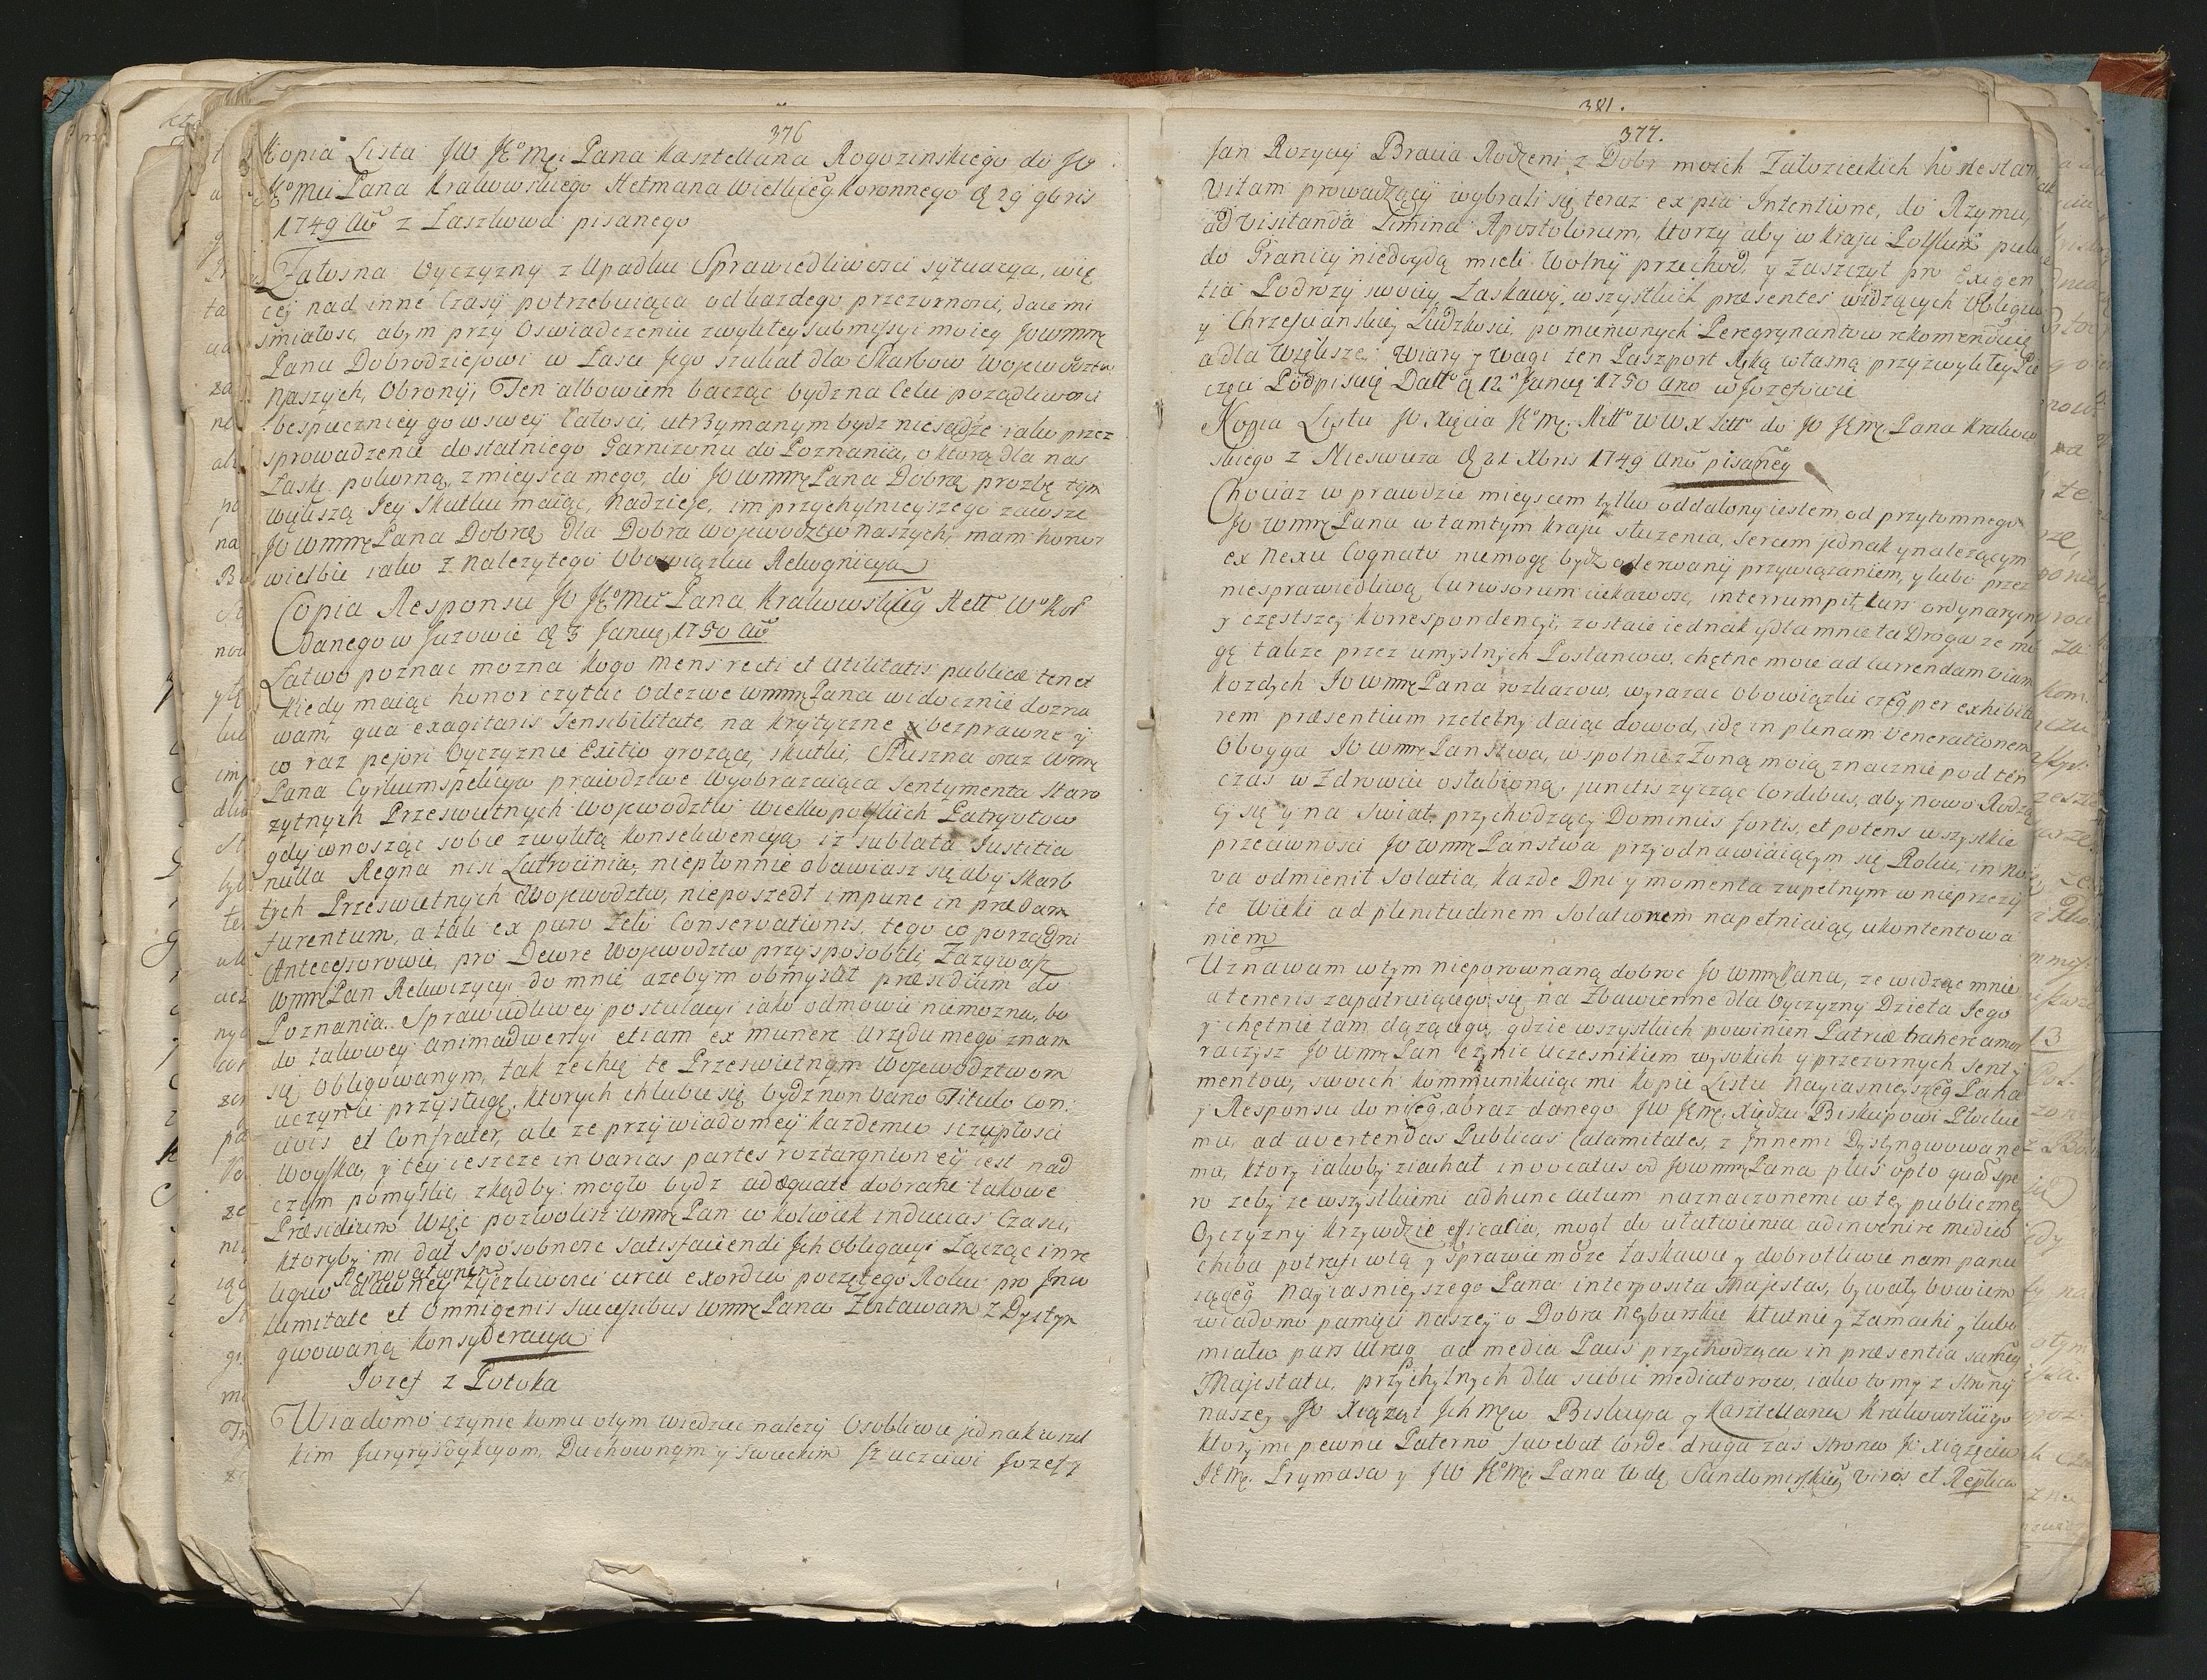 376
Kopia Lista JW JEoMci Pana Kasztellana Rogozinskiego do JO
JEoMci Pana Krakowskiego Hetmana Wielkieg Koronnego D 29 9bris
1749 Ao z Laszkowa pisanego
Załosna Oyczyzny z Upadku Sprawiedliwosci sytuacya, wię
cej nad inne Czasy potrzebuiąca od kazdego przezornosci, daie mi
smiałosc, abym przy Oswiadczeniu zwykłey submissyi moiey JOWMM
Panu Dobrodziejowi w Łasce Jego szukał dla Skarbow Wojewodztw
Naszych, Obrony, Ten albowiem bacząc bydz na Celu poządliwosci
bespieczniey go w swey Całosci, utrzymanym bydz niesądzę iako przez
sprowadzenie dostatniego Garnizonu do Poznania, o ktorą dla nas
Łaskę pokorną, z mieysca mego, do JOWMM Pana Dobrą prozbę tym
wyliszą Jey skutku maiąc, Nadzieję, im przychylnieyszego zawsze
JOWMM Pana Dobrą dla Dobra Wojewodztw Naszych, mam honor
wielbic iako z Nalezytego Obowiązku Rekognicya
Copia Responsu JO JEoMci Pana Krakowskieg Hett Wo Kor
Danego w Juzowie D 3 Januarii 1750 Ao
Łatwo poznac mozna kogo mens recti et utilitatis publicæ tenet
Kiedy maiąc honor czytac Odezwę WMM Pana widocznie dozna
wam, qua exagitaris Sensibilitate, na krytyczne y bezprawne y
co raz pejori Oyczyznie Exitio grożące, skutki, Słuszna oraz WMM
Pana Cyrkumspekcya prawdziwe wyobrazaiąca Sentymenta Staro
zytnych Przeswietnych Wojewodztw Wielkopolskich Patryotow
gdy wnosząc sobie zwykłą konsekwencyą iz sublata Justitia
nulla Regna nisi Latrocinia, niepłonnie obawiasz się aby Skarb
tych Przeswietnych Wojewodztw, nieposzedł impune in prædam
furentum, a tak ex puro zelo Conservationis, tego co porządni
Antecessorowie, pro Decore Wojewodztw przysposobili, Zazywasz
WMM Pan Rekwizycyi do mnie azebym obmyslił præsidium do
Poznania. Sprawiedliwey postulacyi iako odmowic niemozna, bo
do takowey animadwersyi etiam ex munere Urzędu mego znam
się Obligowanym, tak zechcę te Przeswietnym Wojewodztwom
uczynic przysługę, ktorych chlubię się bydz non vano Titulo Con
civis et Confrater, ale ze przy wiadomey kazdemu szczupłosci
Woyska, y tey ieszcze in varias partes roztargnioney iest nad
czym pomyslic, zkądby mogło bydz adæquate dobrane takowe
Præsidium Więc pozwolisz WMM Pan w kolwiek inducias Czasu,
ktoryby mi dał sposobnosc satisfaciendi Jch Obligacyi Łącząc inre
Renovationem
liquo dawney zyczliwosci circa exordia poczętego Roku pro Inco
lumitate et Omnigenis Successibus WMM Pana Zostawam z Dystyn
gwowaną Konsyderacya
Jozef z Potoka
Wiadomo czynię komu otym wiedziec nalezy Osobliwie jednak wszel
kim Jurysdykcyom, Duchownym y Swieckim Iz uczciwi Jozef y
381.
377.
Jan Rozycy Bracia Rodzeni z Dobr moich Załozieckich honestam
Vitam prowadzący wybrali się teraz ex pia Intentione, do Rzymu,
ad visitanda Limina Apostolorum, ktorzy aby w kraju Polskim puki
do Granicy niedoydą mieli Wolny przechod, y Zaszczyt pro Exigen
tia Podrozy swoiey, Łaskawy, wszystkich præsentes widzących Obliguię
y Chrzescianskiey Ludzkosci, pomienionych Peregrynantow rekomenduię
a dla Większey Wiary y Wagi ten Paszport Ręką własną przyzwykłey Pie
częci Podpisuię Datto D 12 Januarii 1750 Ano w Jozefowie
Kopia Listu JO Xięcia JEoMci Hetto W W X Litto do JO JEMci Pana Krakow
skiego z Nieswieza D 21 Xbris 1749 Ano pisaneg
Chociaz w prawdzie mieyscem tylko oddalony iestem od przytomnego
JOWMM Pana w tamtym kraju słuzenia, sercem jednak y nalezącym
ex nexu Cognato niemogę bydz oderwany przywiązaniem, y lubo przez
niesprawiedliwą Curiosorum ciekawosc, interrumpit kurs ordynaryiney
y częstszey korrespondencyi, zostaie iednak y dla mnie ta Droga ze mo
gę takze przez umyslnych Posłancow, chętne moie ad Currendam viam
kozdych JOWMM Pana rozkazow, wyrazac Obowiązki czeg per exhibito
rem præsentium rzetelny daiąc dowod, idę in plenam Venerationem
Oboyga JOWMM Panstwa, wspolnie z Żoną moią znacznie pod ten
czas w Zdrowiu osłabioną, junctis zycząc Cordibus, aby nowo Rodzą
cy się y na Swiat, przychodzący Dominus fortis, et potens wszystkie
przeciwnosci JOWMM Państwa przy odnawiaiącym się Roku, in no
va odmienił solatia, kazde Dni y momenta zupełnym w nieprzezy
te Wieki ad plenitudinem Solationem napełniaiąc, ukontentowa
niem
Uznawam w tym nieporownaną dobroc JOWMM Pana, ze widząc mnie
a teneris zapatruiącego się na zbawienne dla Oyczyzny Dzieła Jego
y chętnie tam dązącego gdzie wszystkich powinien Patriæ trahere amor
raczysz JOWMM Pan czynic uczesnikiem wysokich y przezornych Senty
mentow, swoich kommunikuiąc mi kopie Listu Nayiasnieyszeg Pana
y Responsu do nieg, a oraz danego JW JEMci Xiędzu Biskupowi Płockie
mu, ad avertendas Publicas Calamitates, z Innemi Dystyngwowane
ma, ktory iakoby ziachał invocatus od JOWMM Pana plus opto quam spe
ro zeby ze wszystkiemi ad hunc actum naznaczonemi w tey publiczney
Oyczyzny krzywdzie efficalia, mogł do ułatwienia adinvenire media
chiba potrafi wtą y sprawic może łaskawie y dobrotliwie nam panu
iąceg Nayiasnieyszego Pana interposita Majestas, bywały bowiem
wiadomo pamięci naszey o Dobra Neyburskie kłutnie y Zamachi y lubo
miała pars utraq ad media Pacis przychodząca in præsentia samey
Majestatu, przychylnych dla siebie mediatorow, iako to my z strony
naszey JO Xiąząt Jch Mciw Biskupa y Kasztellana Krakowskiego
ktory mi pewnie Paterno favebat Corde, druga zas strona JO Xiązęcia
JEMci Prymasa y JW JEoMci Pana Wdę Sandomirskieg viros et Replica